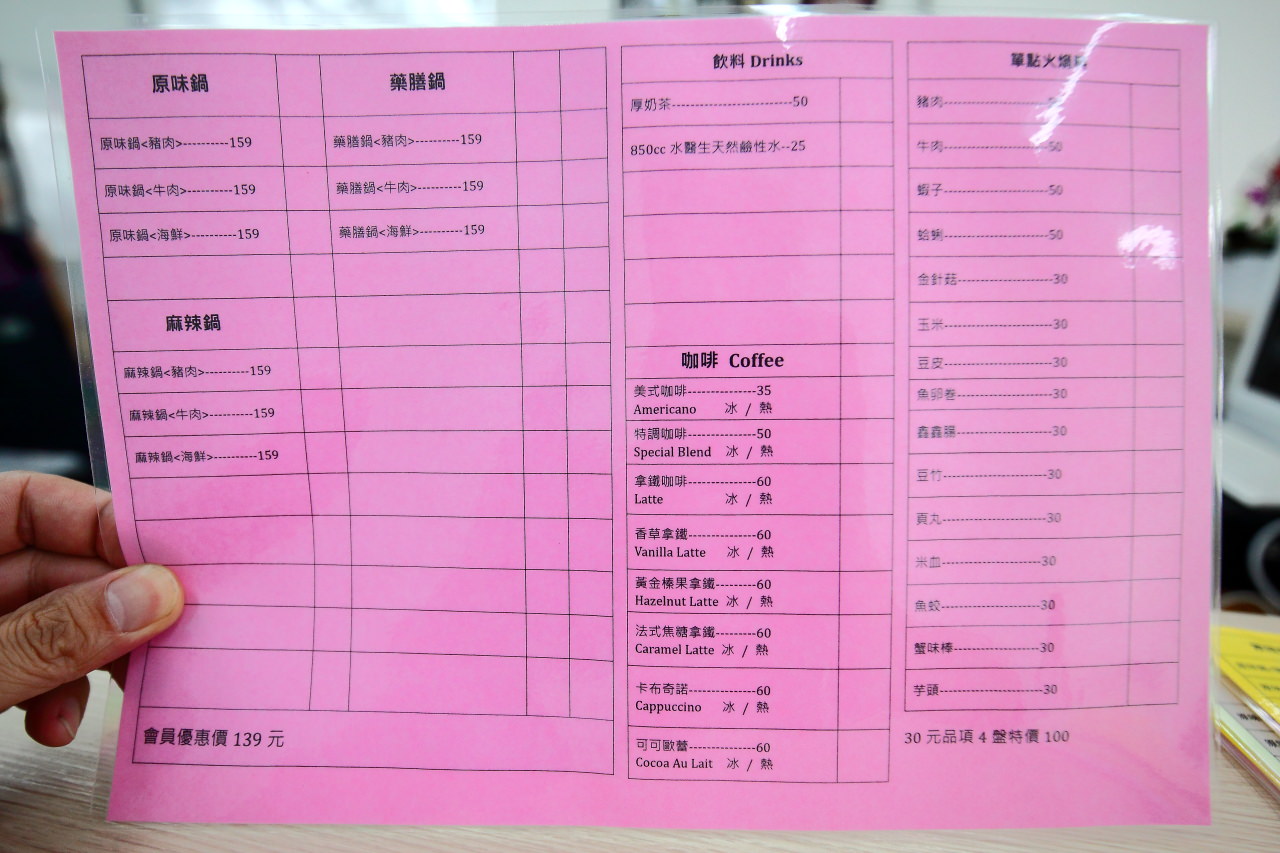 原味鍋
原味鍋<豬肉>----------159
原味鍋<牛肉>----------159
原味鍋<海鮮>----------159
麻辣鍋
麻辣鍋<豬肉>----------159
麻辣鍋<牛肉>----------159
麻辣鍋<海鮮>----------159
藥膳鍋
藥膳鍋<豬肉>----------159
藥膳鍋<牛肉>----------159
藥膳鍋<海鮮>----------159
會員優惠價 139 元
飲料 Drinks
厚奶茶--------------------------50
850cc 水醫生天然鹼性水--25
咖啡 Coffee
美式咖啡---------------35
Americano 冰 / 熱
特調咖啡---------------50
Special Blend 冰 / 熱
拿鐵咖啡---------------60
Latte 冰 / 熱
香草拿鐵---------------60
Vanilla Latte 冰 / 熱
黃金榛果拿鐵---------60
Hazelnut Latte 冰 / 熱
法式焦糖拿鐵---------60
Caramel Latte 冰 / 熱
卡布奇諾---------------60
Cappuccino 冰 / 熱
可可歐蕾---------------60
Cocoa Au Lait 冰 / 熱
單點火鍋
豬肉-----------------------
牛肉-----------------------50
蝦子-----------------------50
蛤蜊-----------------------50
金針菇---------------------30
玉米------------------------30
豆皮------------------------30
魚卵卷---------------------30
鑫鑫腸---------------------30
豆竹------------------------30
貢丸------------------------30
米血------------------------30
魚餃------------------------30
蟹味棒---------------------30
芋頭------------------------30
30 元品項 4 盤特價 100